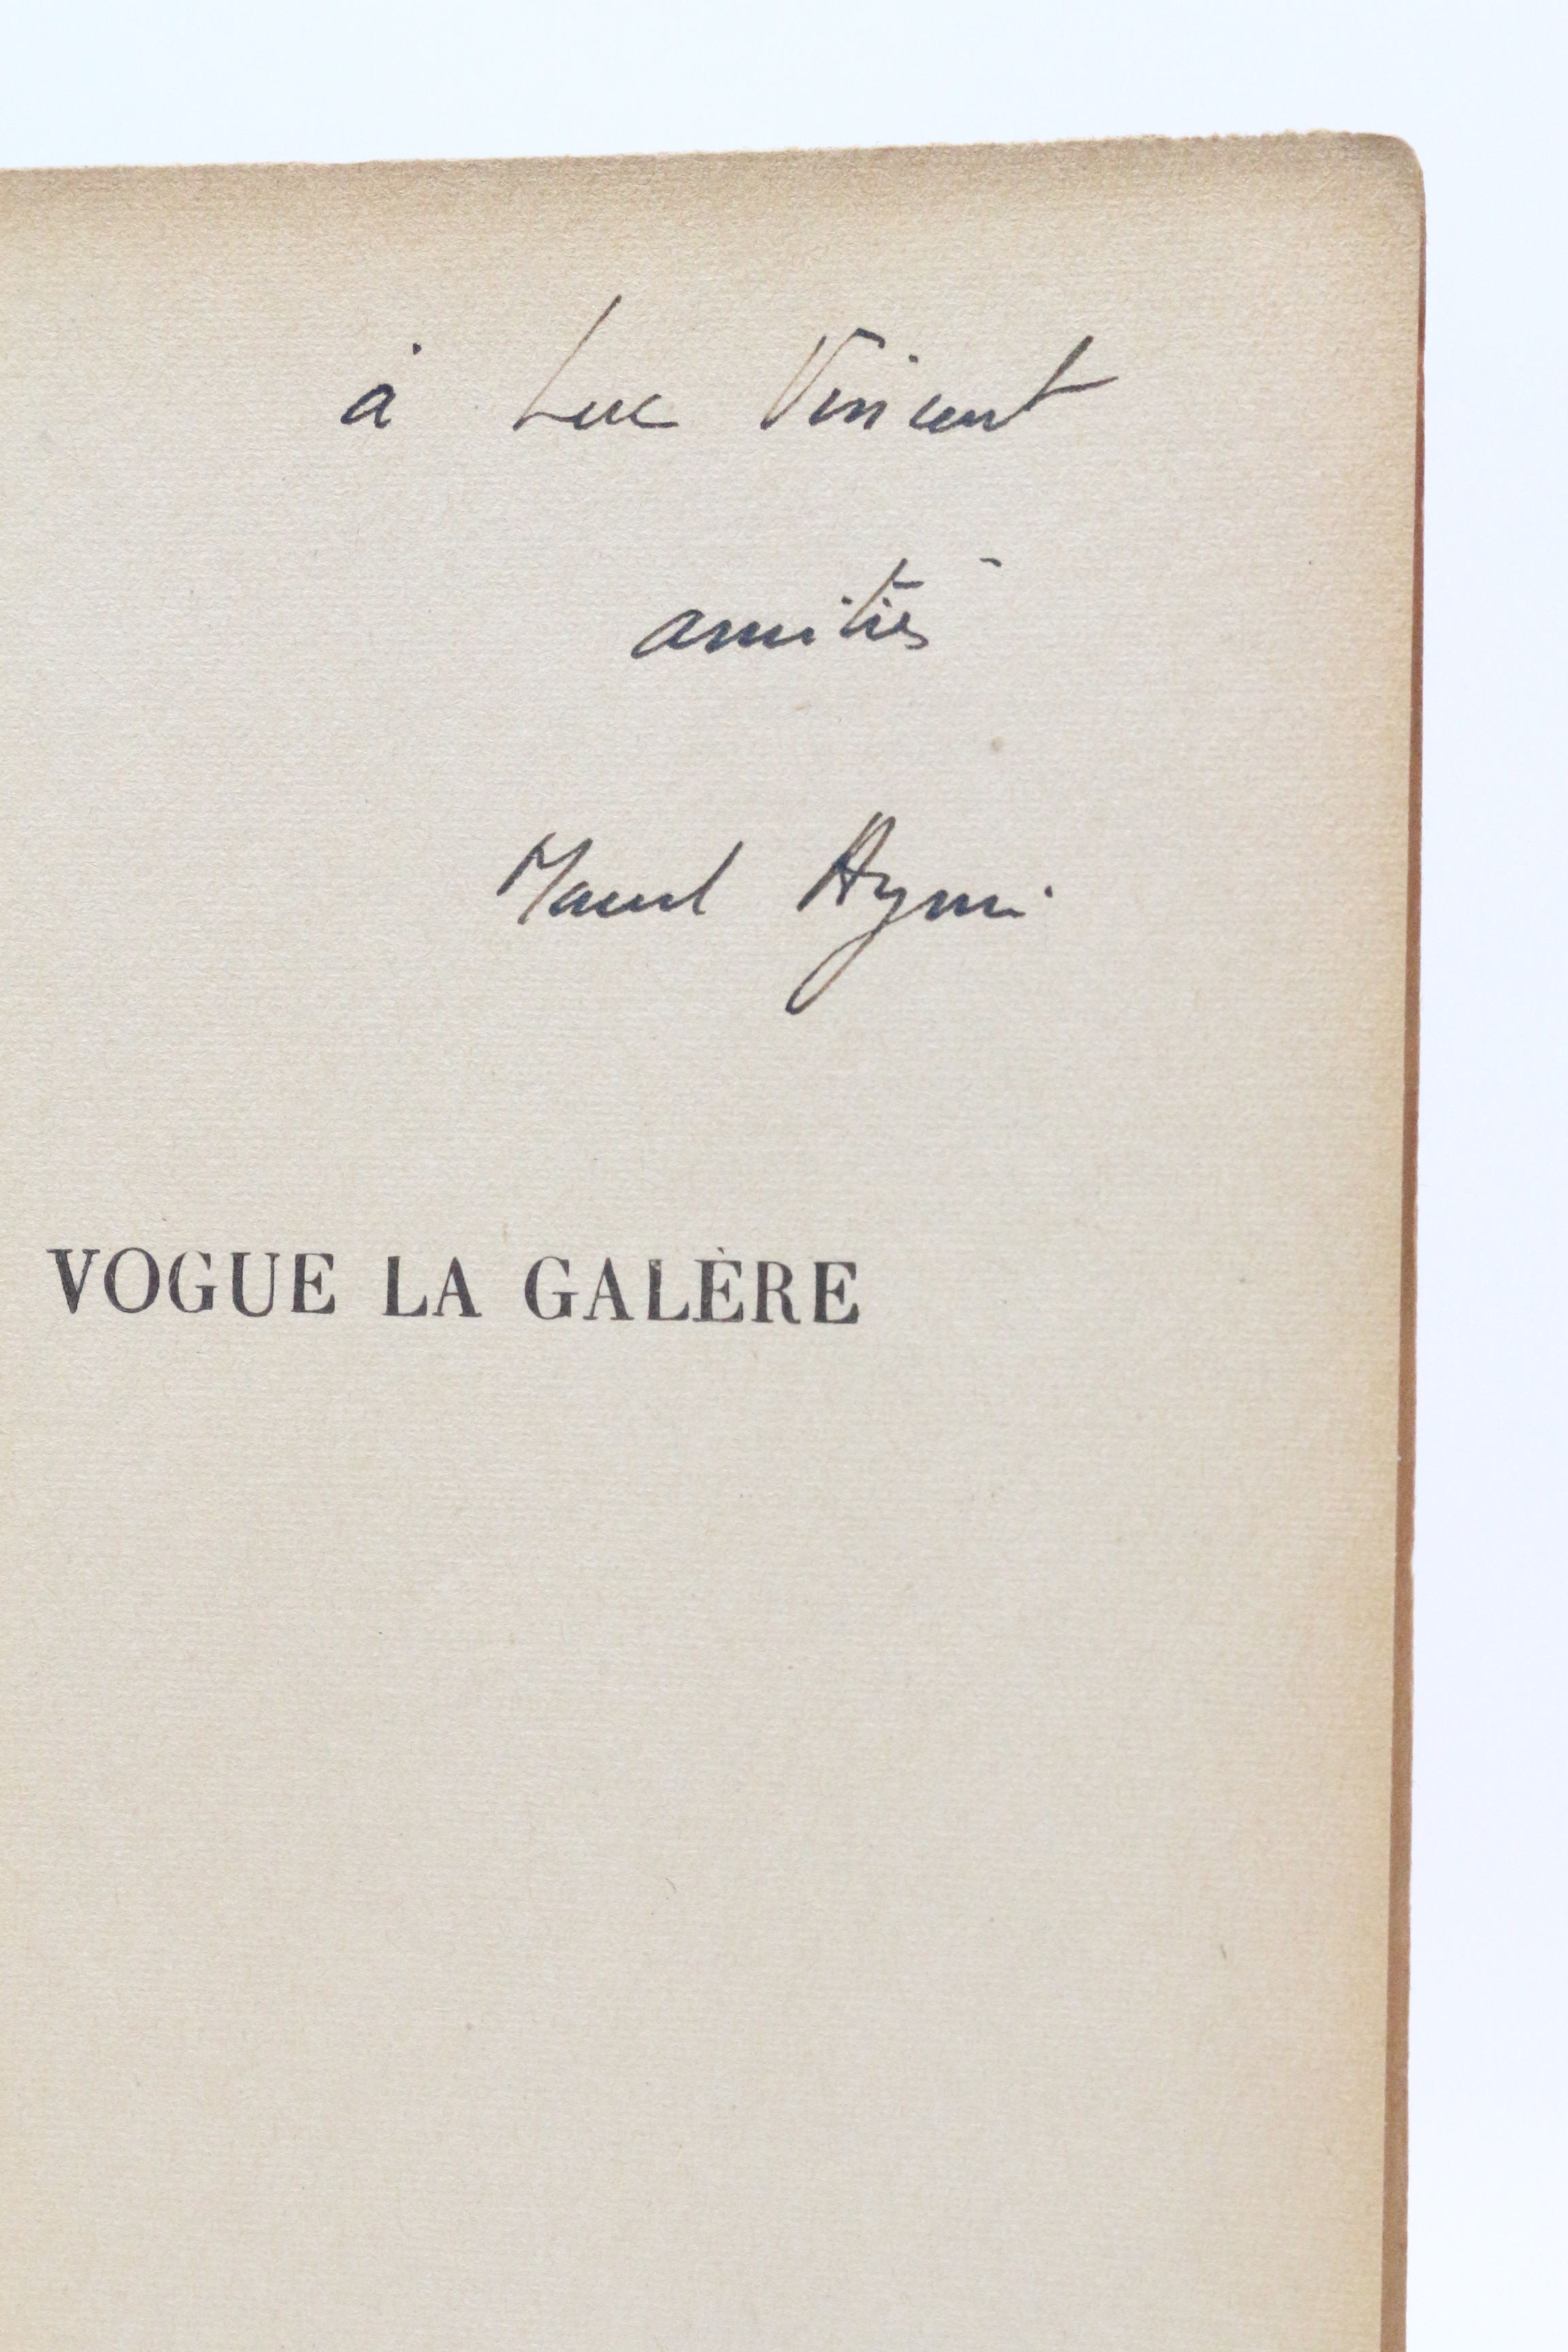 à Luc Vincent
amitiés
Marcel Aymé
VOGUE LA GALÈRE